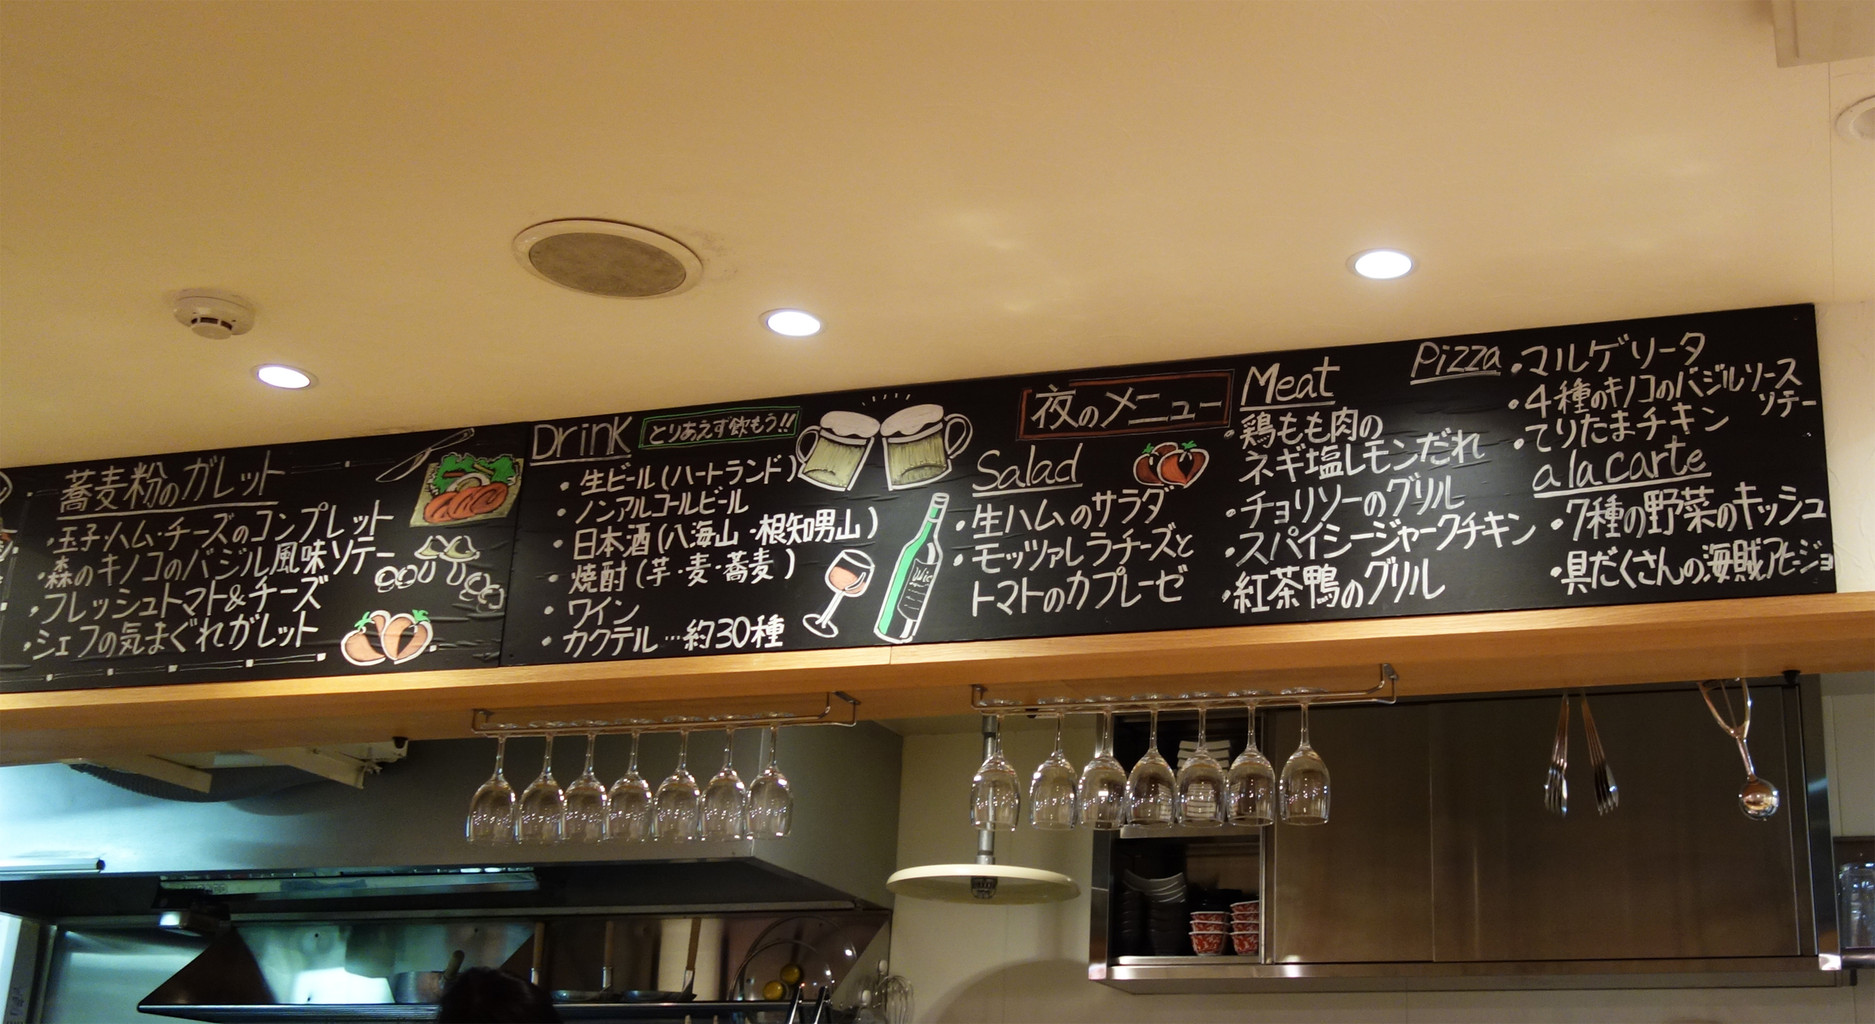 蕎麦粉のガレット
・玉子・ハム・チーズのコンプレット
・森のキノコのバジル風味ソテー
・フレッシュトマト&チーズ
・シェフの気まぐれガレット
Drink
とりあえず飲もう!!
・生ビール(ハートランド)
・ノンアルコールビール
・日本酒(八海山・根知男山)
・焼酎(芋・麦・蕎麦)
・ワイン
・カクテル…約30種
夜のメニュー
Salad
・生ハムのサラダ
・モッツァレラチーズと
トマトのカプレーゼ
Meat
・鶏もも肉の
ネギ塩レモンだれ
・チョリソーのグリル
・スパイシージャークチキン
・紅茶鴨のグリル
Pizza
・マルゲリータ
・4種のキノコのバジルソース
ソテー
・てりたまチキン
a la carte
・7種の野菜のキッシュ
・具だくさんの海賊アヒージョ